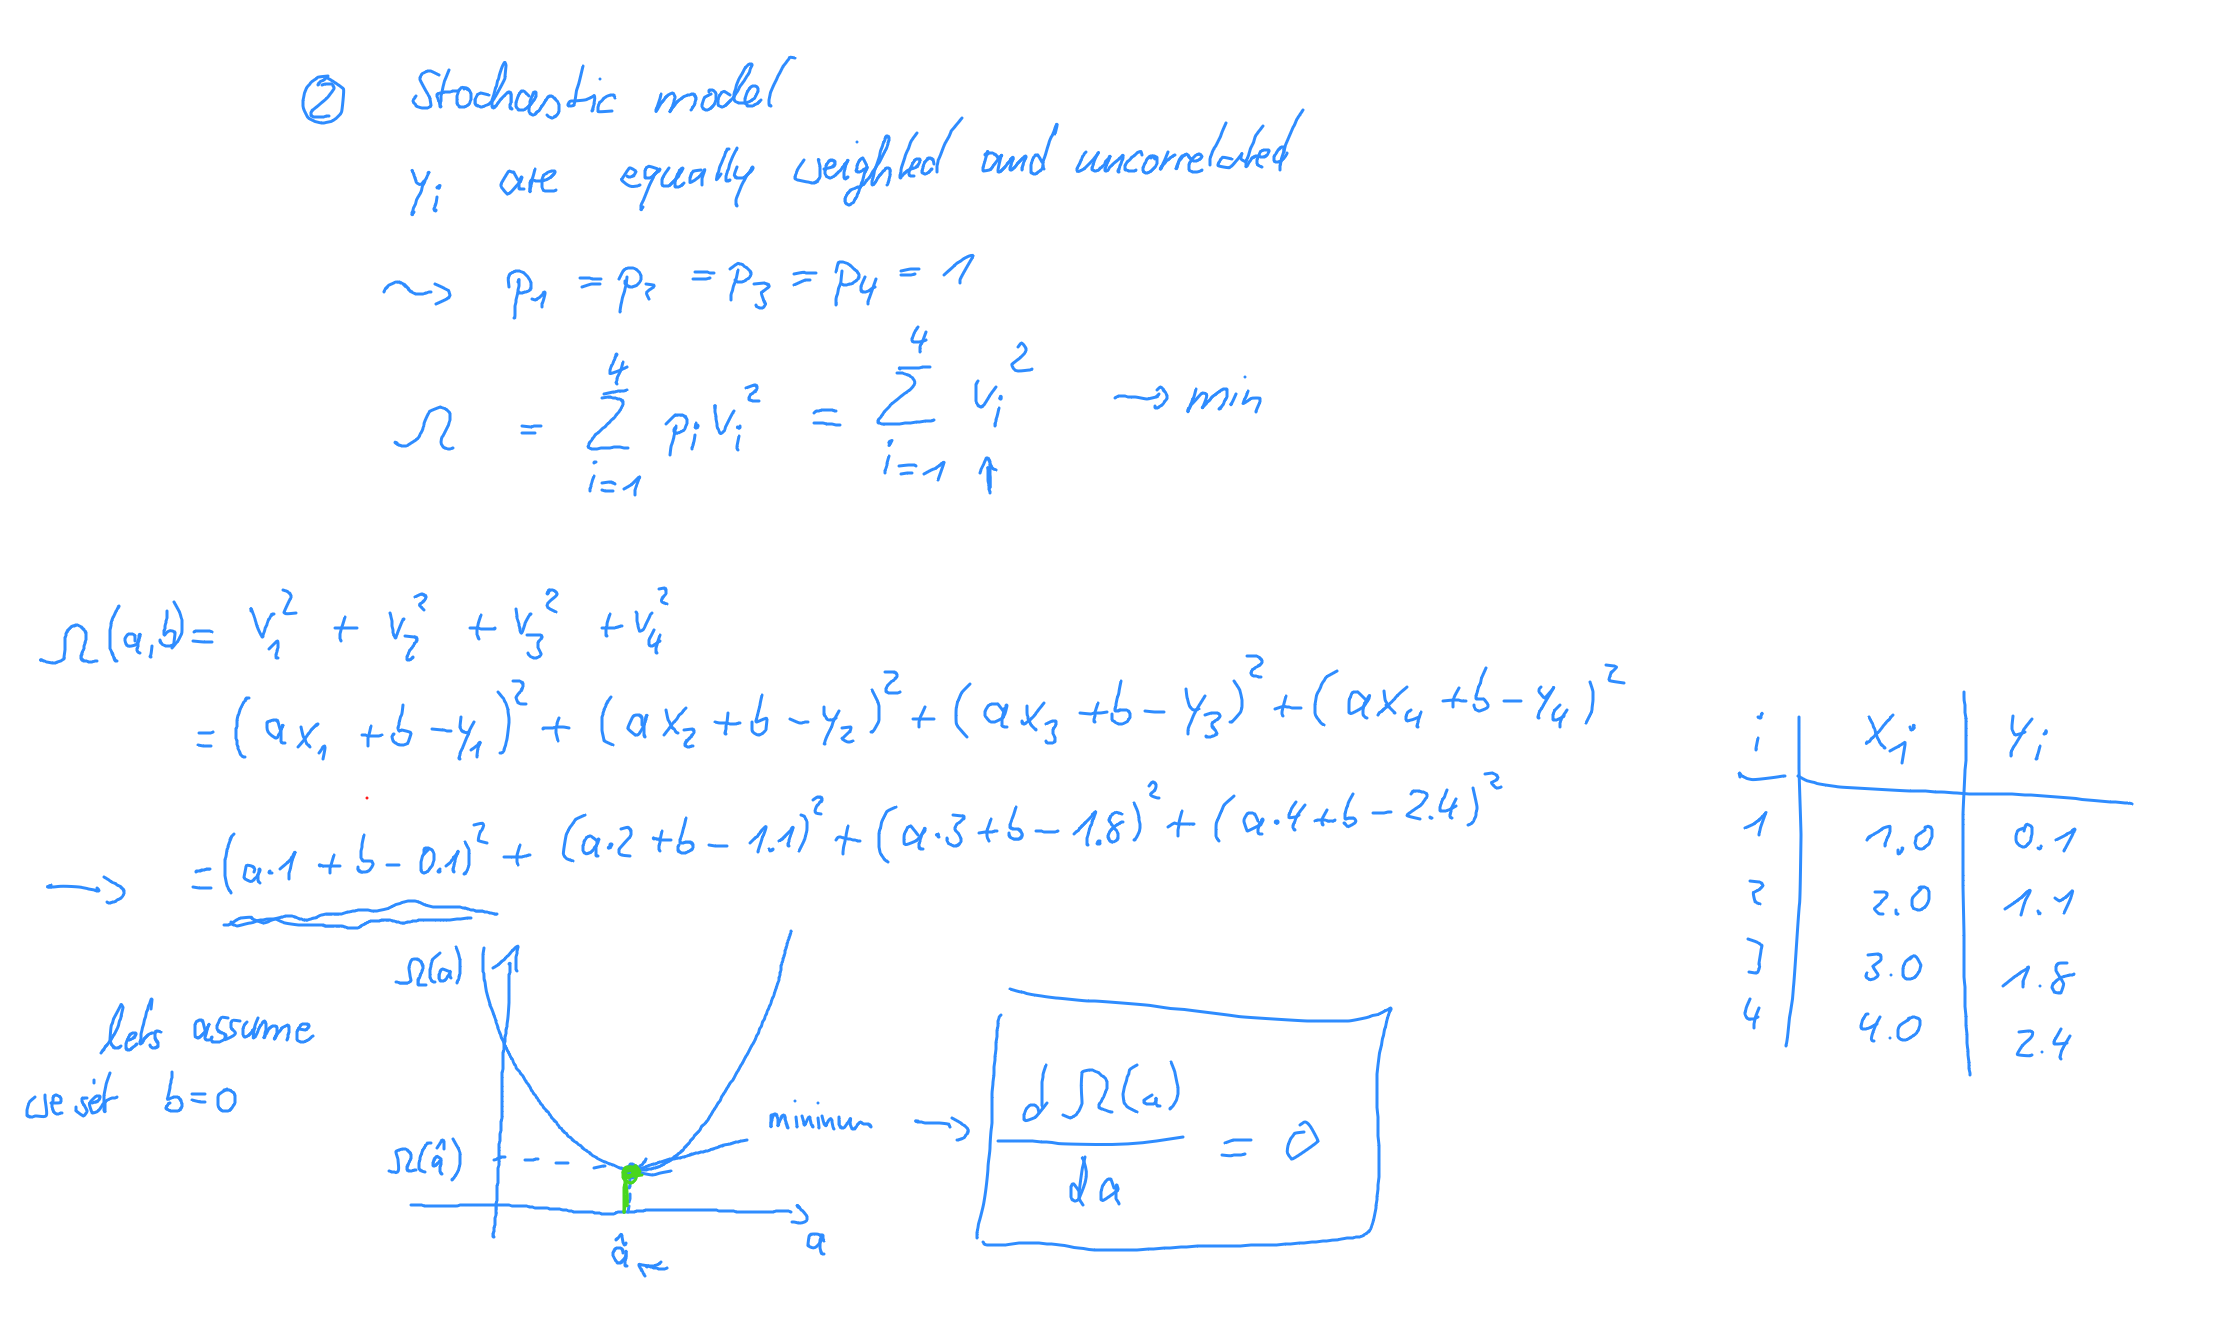 ② Stochastic model
yᵢ are equally weighted and uncorrelated
⇝ p₁ = p₂ = p₃ = p₄ = 1
Ω = ∑_{i=1}^{4} pᵢvᵢ² = ∑_{i=1}^{4} vᵢ² → min
↑
Ω(a,b) = v₁² + v₂² + v₃² + v₄²
= (ax₁ + b - y₁)² + (ax₂ + b - y₂)² + (ax₃ + b - y₃)² + (ax₄ + b - y₄)²
→ = (a·1 + b - 0.1)² + (a·2 + b - 1.1)² + (a·3 + b - 1.8)² + (a·4 + b - 2.4)²
i xᵢ yᵢ
1 1.0 0.1
2 2.0 1.1
3 3.0 1.8
4 4.0 2.4
lets assume
we set b=0
Ω(a)
Ω(â)
â
a
minimum → dΩ(a)/da = 0